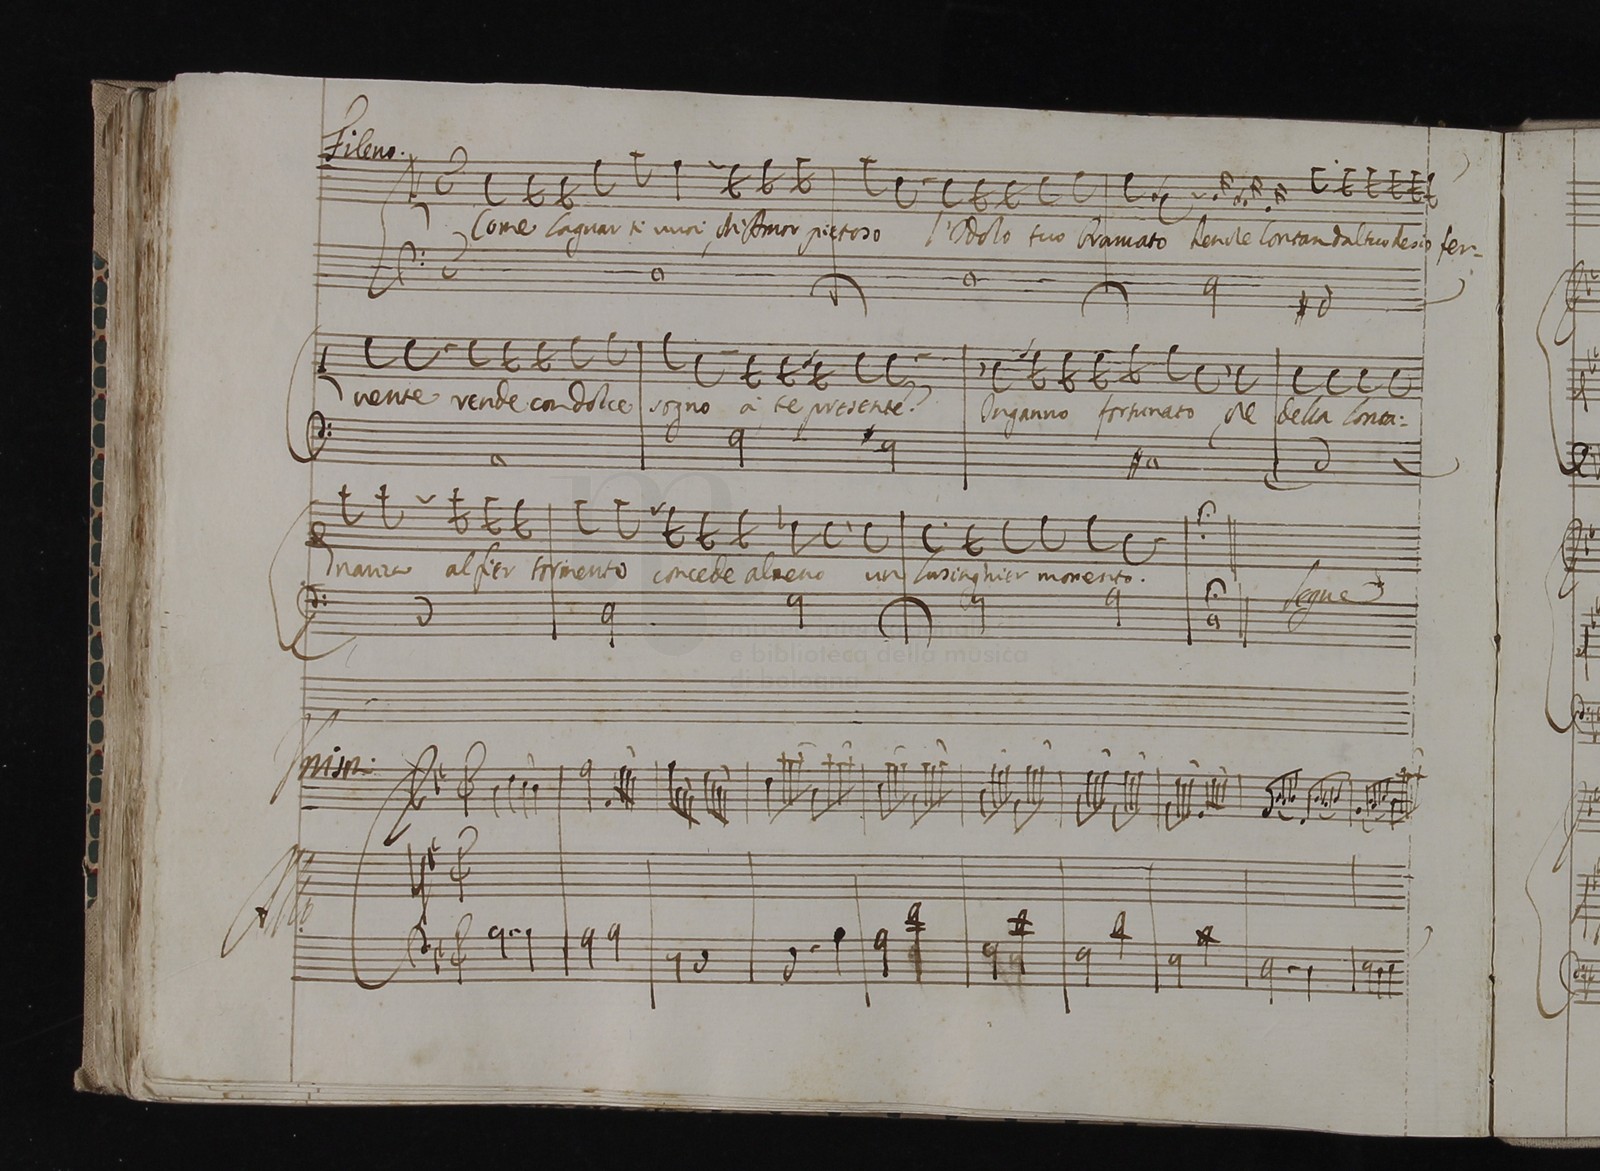 Fileno.
Come lagnar ti vuoi, ch'Amor pietoso l'Idolo tuo bramato rende lontan dal tuo desio fer-
vente rende con dolce sogno à te presente?
Inganno fortunato che della lonta:
nanza al fier tormento concede almeno un lusinghier momento.
Segue
museo internazionale
e biblioteca della musica
di bologna
Unisni:
All:o